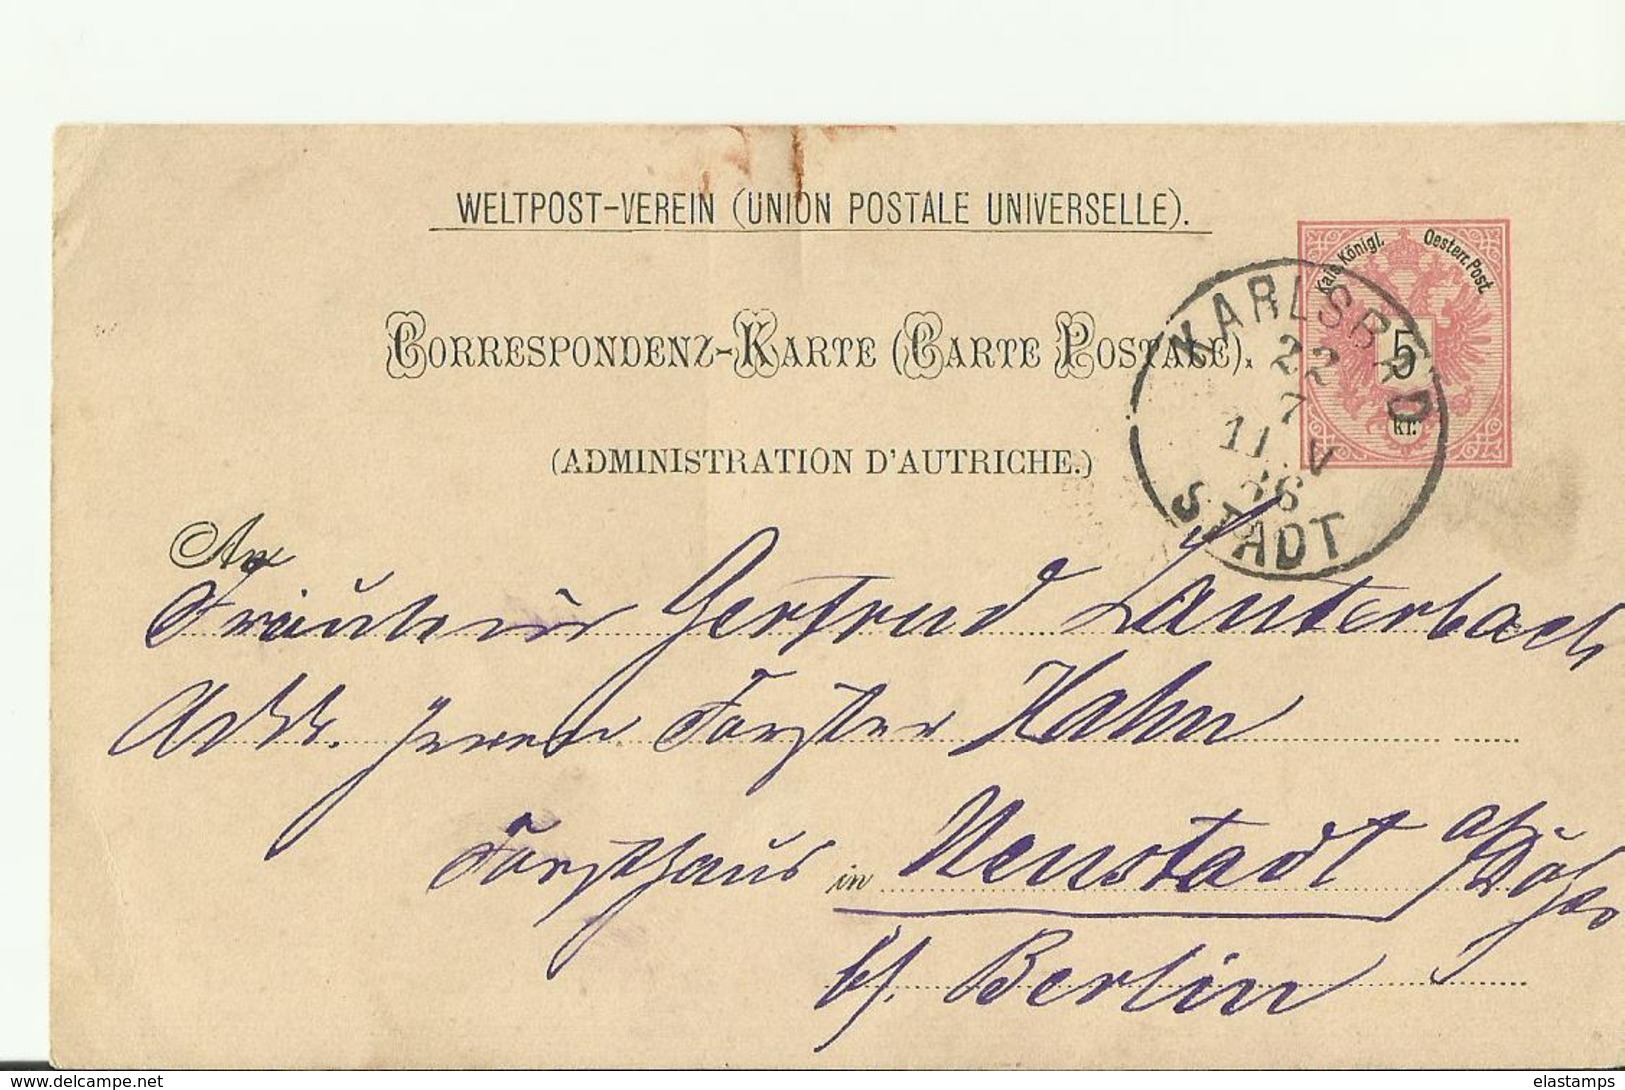 WELTPOST-VEREIN (UNION POSTALE UNIVERSELLE).
Kais. Königl. Oesterr. Post.
5
kr.
CORRESPONDENZ-KARTE (CARTE POSTALE).
KARLSBAD
22
7
11.V
86
STADT
(ADMINISTRATION D'AUTRICHE.)
An
Fräulein Gertrud Lauterbach
Adr. Herrn Förster Hahn
Forsthaus in Neustadt a/
b/. Berlin
delcampe.net
elastamps